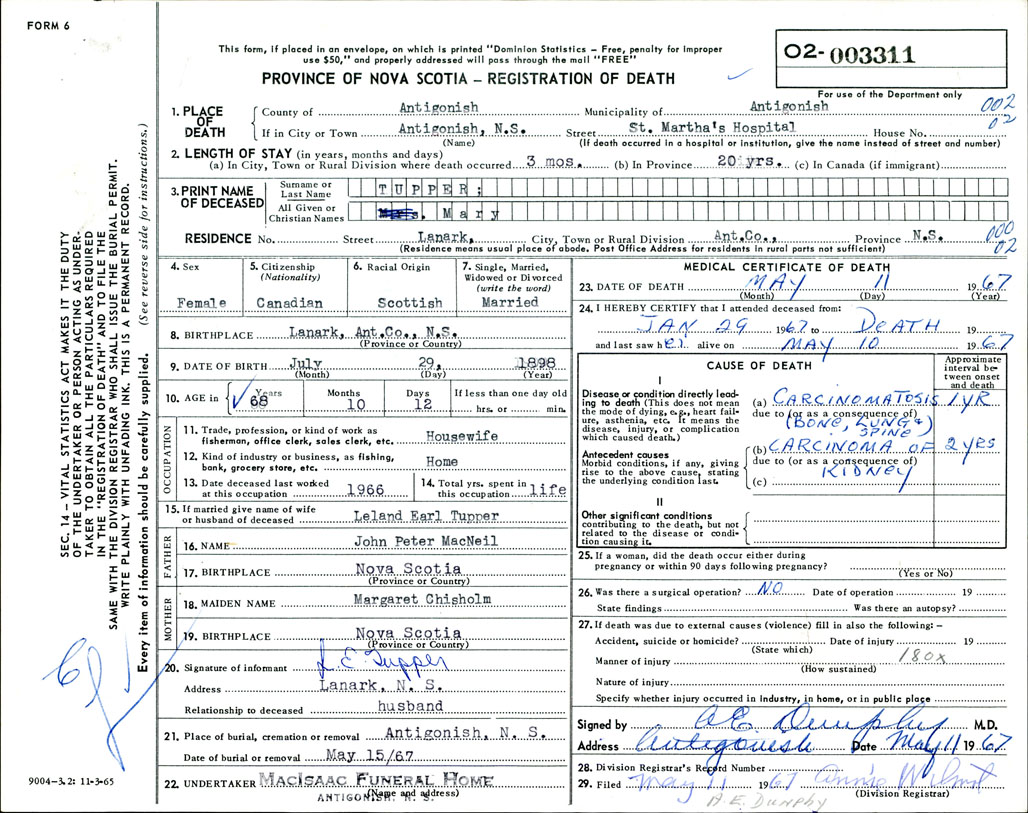 FORM 6
This form, if placed in an envelope, on which is printed "Dominion Statistics – Free, penalty for improper
use $50," and properly addressed will pass through the mail "FREE"
PROVINCE OF NOVA SCOTIA – REGISTRATION OF DEATH
02-003311
For use of the Department only
002
02
1. PLACE OF DEATH
County of Antigonish Municipality of Antigonish
If in City or Town Antigonish, N.S. Street St. Martha's Hospital House No.
(Name) (If death occurred in a hospital or institution, give the name instead of street and number)
2. LENGTH OF STAY (in years, months and days)
(a) In City, Town or Rural Division where death occurred 3 mos. (b) In Province 20 yrs. (c) In Canada (if immigrant)
3. PRINT NAME OF DECEASED
Surname or Last Name TUPPER;
All Given or Christian Names Mary
RESIDENCE No. Street Lanark, City, Town or Rural Division Ant.Co., Province N.S.
(Residence means usual place of abode. Post Office Address for residents in rural parts not sufficient)
000
02
4. Sex
Female
5. Citizenship
(Nationality)
Canadian
6. Racial Origin
Scottish
7. Single, Married,
Widowed or Divorced
(write the word)
Married
8. BIRTHPLACE Lanark, Ant.Co., N.S.
(Province or Country)
9. DATE OF BIRTH July 29, 1898
(Month) (Day) (Year)
10. AGE in Years 68 Months 10 Days 12 If less than one day old
hrs. or min.
OCCUPATION
11. Trade, profession, or kind of work as
fisherman, office clerk, sales clerk, etc. Housewife
12. Kind of industry or business, as fishing,
bank, grocery store, etc. Home
13. Date deceased last worked
at this occupation 1966
14. Total yrs. spent in
this occupation life
15. If married give name of wife
or husband of deceased Leland Earl Tupper
FATHER
16. NAME John Peter MacNeil
17. BIRTHPLACE Nova Scotia
(Province or Country)
MOTHER
18. MAIDEN NAME Margaret Chisholm
19. BIRTHPLACE Nova Scotia
(Province or Country)
20. Signature of informant L. E. Tupper
Address Lanark, N. S.
Relationship to deceased husband
21. Place of burial, cremation or removal Antigonish, N. S.
Date of burial or removal May 15/67
22. UNDERTAKER MacIsaac Funeral Home
ANTIGONISH, N. S.
(Name and address)
MEDICAL CERTIFICATE OF DEATH
23. DATE OF DEATH MAY 11 1967
(Month) (Day) (Year)
24. I HEREBY CERTIFY that I attended deceased from:
JAN 29 1967 to DEATH 19
and last saw her alive on MAY 10 1967
CAUSE OF DEATH
Approximate
interval be-
tween onset
and death
I
Disease or condition directly lead-
ing to death (This does not mean
the mode of dying, e.g., heart fail-
ure, asthenia, etc. It means the
disease, injury, or complication
which caused death.)
(a) CARCINOMATOSIS 1 YR
due to (or as a consequence of)
(BONE, LUNG &
SPINE)
Antecedent causes
Morbid conditions, if any, giving
rise to the above cause, stating
the underlying condition last.
(b) CARCINOMA OF 2 yrs
due to (or as a consequence of)
KIDNEY
(c)
II
Other significant conditions
contributing to the death, but not
related to the disease or condi-
tion causing it.
25. If a woman, did the death occur either during
pregnancy or within 90 days following pregnancy?
(Yes or No)
26. Was there a surgical operation? NO Date of operation 19
State findings Was there an autopsy?
27. If death was due to external causes (violence) fill in also the following: –
Accident, suicide or homicide? Date of injury 19
(State which)
Manner of injury 180X
(How sustained)
Nature of injury
Specify whether injury occurred in Industry, in home, or in public place
Signed by A E Dunphy M.D.
Address Antigonish Date May 11 1967
28. Division Registrar's Record Number
29. Filed May 11 1967 Annie
(Division Registrar)
A.E. Dunphy
SEC. 14 – VITAL STATISTICS ACT MAKES IT THE DUTY
OF THE UNDERTAKER OR PERSON ACTING AS UNDER-
TAKER TO OBTAIN ALL THE PARTICULARS REQUIRED
IN THE "REGISTRATION OF DEATH" AND TO FILE THE
SAME WITH THE DIVISION REGISTRAR WHO SHALL ISSUE THE BURIAL PERMIT.
WRITE PLAINLY WITH UNFADING INK. THIS IS A PERMANENT RECORD.
Every item of information should be carefully supplied. (See reverse side for instructions.)
9004-3.2: 11-3-65